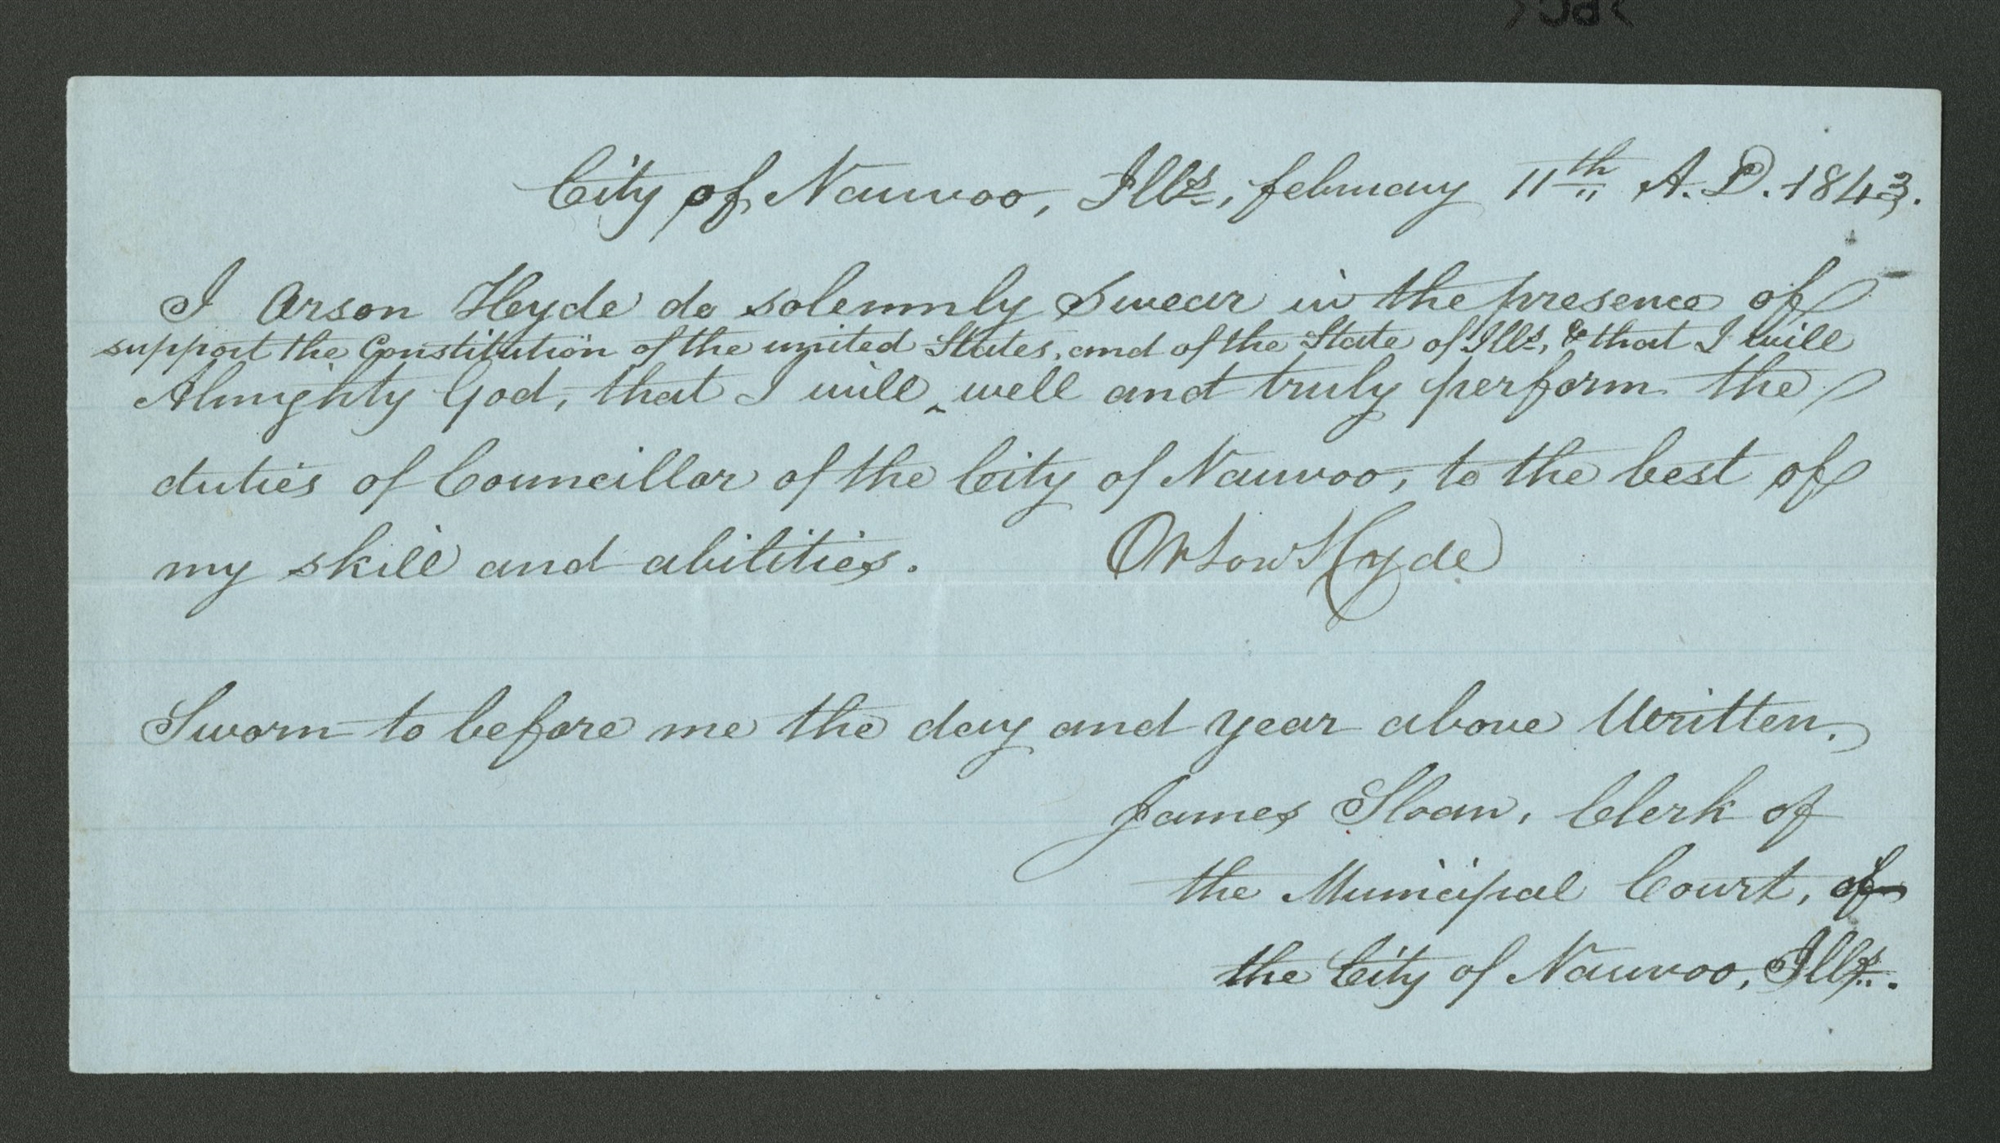 City of Nauvoo, Ills, february 11th A.D. 1843.
I Orson Hyde do solemnly Swear in the presence of
support the Constitution of the united States, and of the State of Ills, & that I will
Almighty God, that I will ‸ well and truly perform the
duties of Councillor of the City of Nauvoo, to the best of
my skill and abilities. Orson Hyde
Sworn to before me the day and year above Written.
James Sloan, Clerk of
the Municipal Court, of
the City of Nauvoo, Ills.